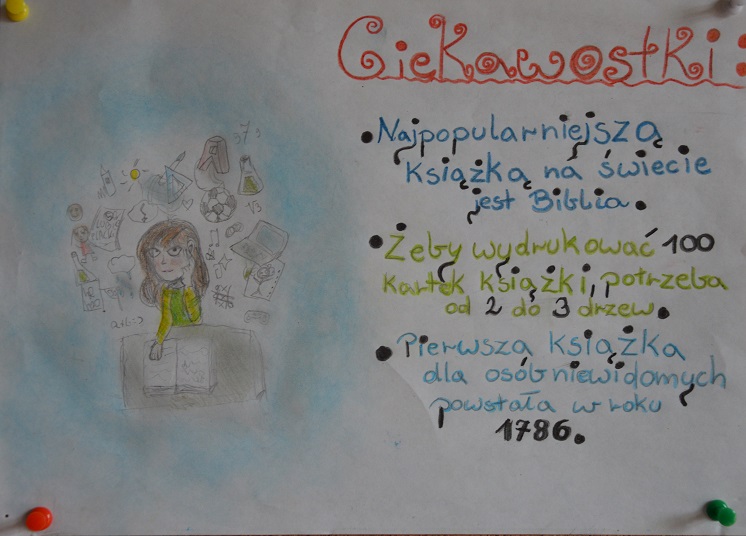 Ciekawostki:
• Najpopularniejszą
książką na świecie
jest Biblia.
• Żeby wydrukować 100
kartek książki, potrzeba
od 2 do 3 drzew.
• Pierwsza książka
dla osób niewidomych
powstała w roku
1786.